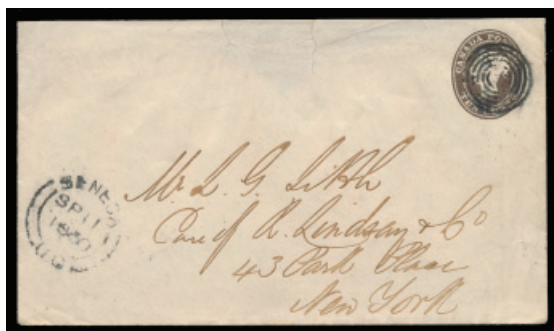 CANADA PO
SENECA
SP 11
1860
U.C.
Mr. L. G.
Care of R. Lindsay & Co
43 Park Place
New York